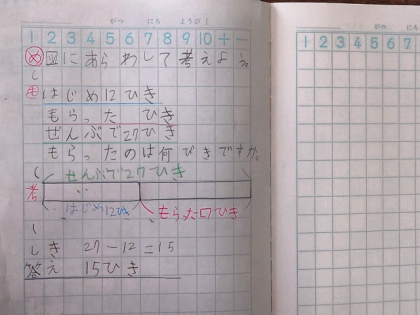 がつ にち ようび
1 2 3 4 5 6 7 8 9 10 + -
め 図にあらわして考えよう。
し
問 はじめ12ひき
もらった ひき
ぜんぶで27ひき
もらったのは何びきですか。
し ぜんぶで27ひき
考
はじめ12ひき もらった□ひき
し
しき 27-12=15
答え 15ひき
がつ にち
1 2 3 4 5 6 7